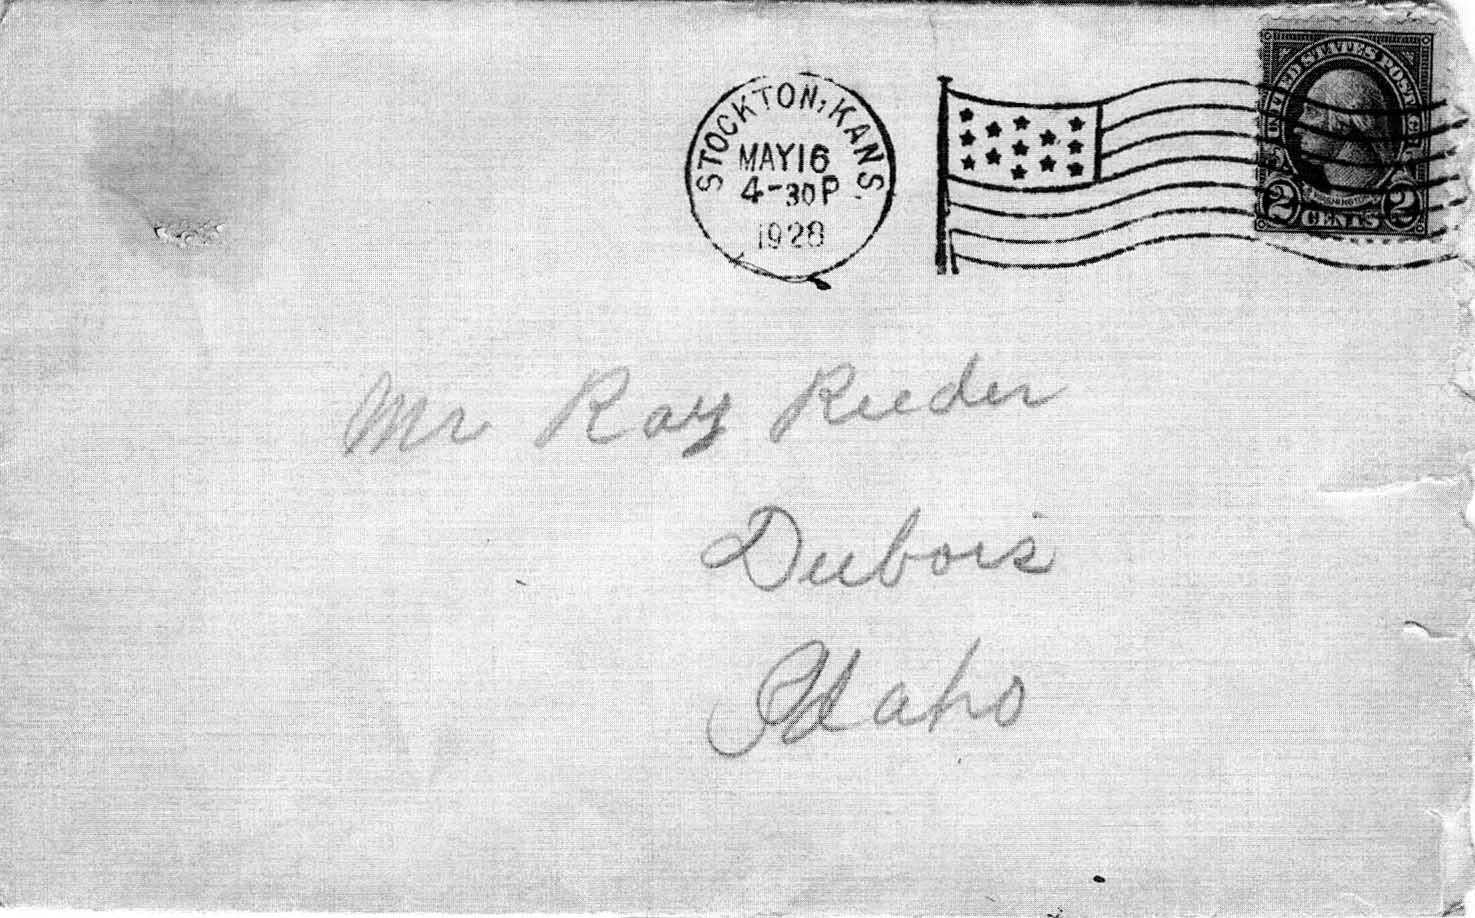 STOCKTON, KANS
MAY 16
4-30 P
1928
UNITED STATES POSTAGE
WASHINGTON
2 CENTS 2
Mr Ray Reeder
Dubois
Idaho